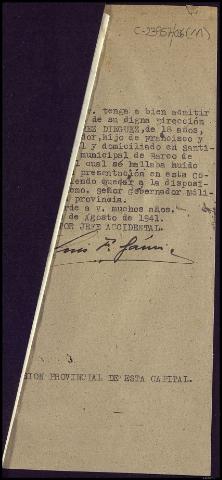 C-23957/26(11)
. tenga a bien admitir
de su digna Dirección
EZ DIEGUEZ, de 18 años,
dor, hijo de Francisco y
l y domiciliado en Santi-
municipal de Barco de
l cual se hallaba huido
presentación en esta Co-
iendo quedar a la disposi-
cmo. Señor Gobernador Mili-
provincia.
rde a V. muchos años.
de Agosto de 1941.
OR JEFE ACCIDENTAL.
SION PROVINCIAL DE ESTA CAPITAL.